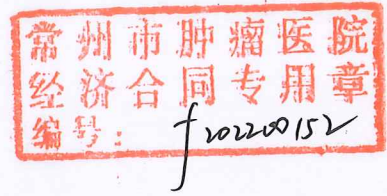 常州市肿瘤医院
经济合同专用章
编号：f202200152